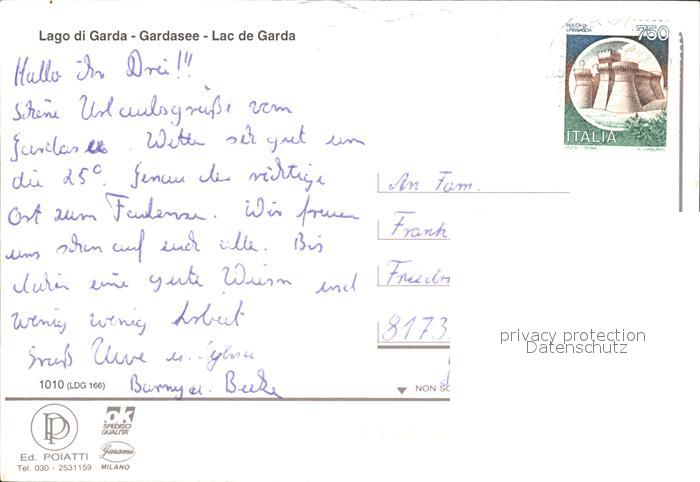 Lago di Garda - Gardasee - Lac de Garda
Hallo ihr Drei!!!
Schöne Urlaubsgrüße vom
Gardasee. Wetter sehr gut um
die 25°. Genau der richtige
Ort zum Faulenzen. Wir freuen
uns schon auf euch alle. Bis
dahin eine gute Wiesn und
wenig wenig Arbeit
Gruß Uwe u. Sylvia
Barny u.
1010 (LDG 166)
750
ROCCA DI URBISAGLIA
ITALIA
I.P.Z.S. - ROMA
An Fam.
Frank
Friedr
8173
privacy protection
Datenschutz
NON SC
PD
Ed. POIATTI
Tel. 030 - 2531159
ok
SPEDISCI
QUALITA'
Garami
MILANO